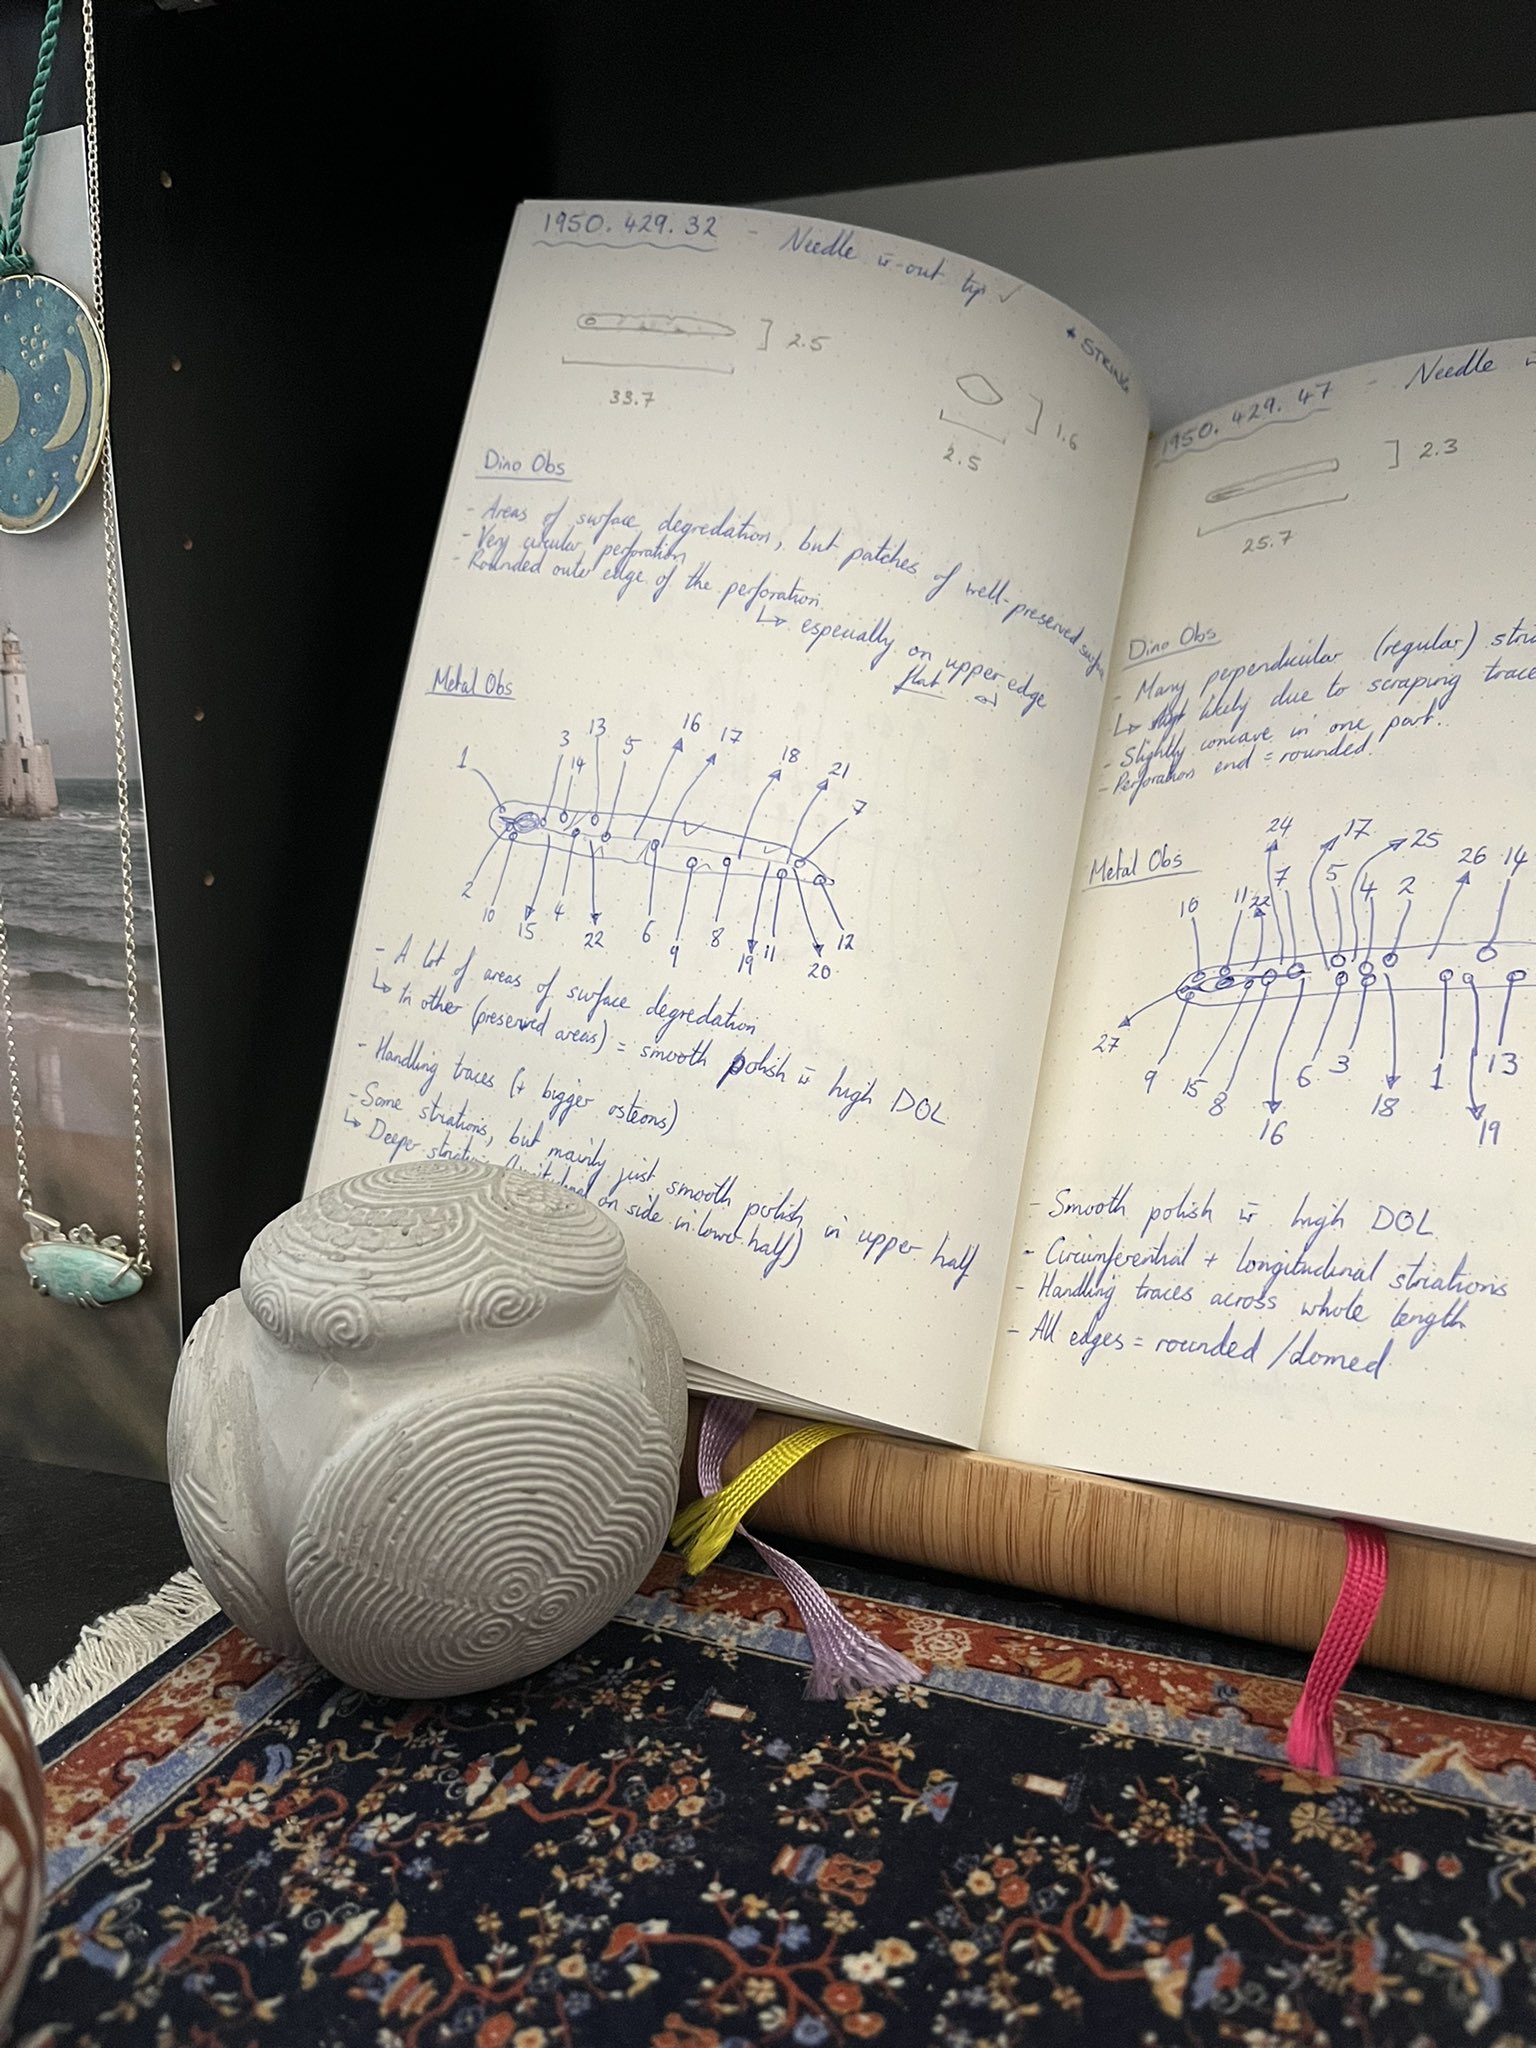 1950.429.32 - Needle w̄-out tip ✓
+ STRING
2.5
33.7
1.6
2.5
Dino Obs
- Areas of surface degredation, but patches of well-preserved surface
- Very circular perforation
- Rounded outer edge of the perforation
↳ especially on upper edge
flat
Metal Obs
1 3 14 13 5 16 17 18 21 7
2 10 15 4 22 6 9 8 19 11 20 12
- A lot of areas of surface degredation
↳ In other (preserved areas) = smooth polish w̄ high DOL
- Handling traces (+ bigger osteons)
- Some striations, but mainly just smooth polish in upper half
↳ Deeper on side in lower half)
1950.429.47 - Needle
2.3
25.7
Dino Obs
- Many perpendicular (regular)
↳ likely due to scraping traces
- Slightly concave in one part..
- Perforation end = rounded.
Metal Obs
10 11 22 24 7 17 5 4 25 2 26 14
27 9 15 8 16 6 3 18 1 19 13
- Smooth polish w̄ high DOL
- Circumferential + longitudinal striations
- Handling traces across whole length
- All edges = rounded /domed